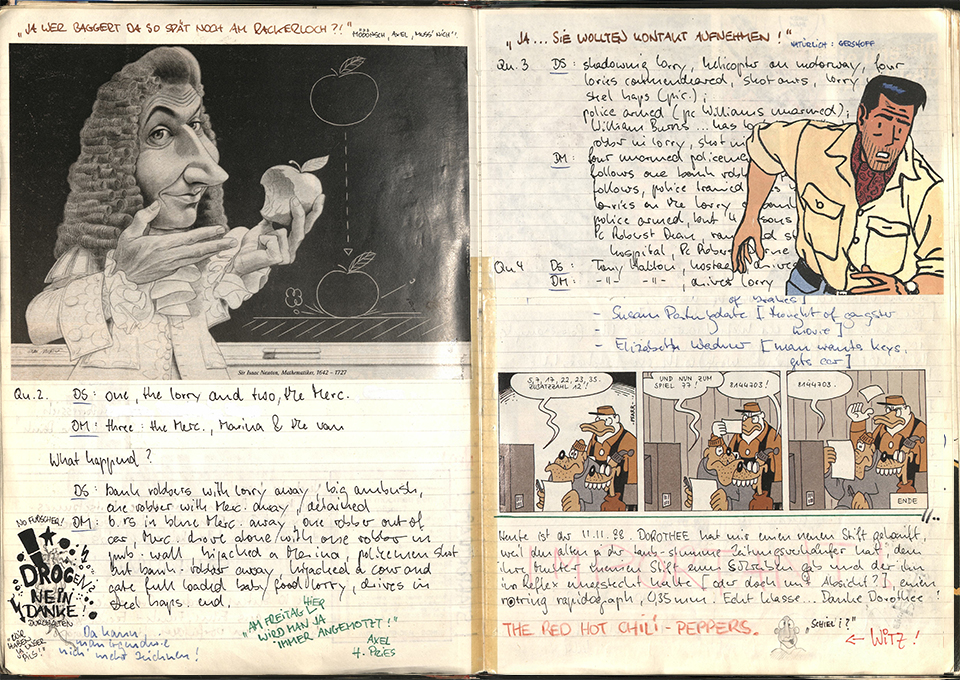 "JA WER BAGGERT DA SO SPÄT NOCH AM BACKERLOCH ?!"
AXEL, MUSS' NICH'!
Sir Isaac Newton, Mathematiker, 1642 – 1727
Qu. 2. DS: one, the lorry and two, the Merc.
DM: three: the Merc., Marina & the van
What happend ?
DS: bank robbers with lorry away, big ambush,
one robber with Merc. away, detained
DM: b. rs in blue Merc. away, one robber out of
car, Merc. drove alone with one robber in
wall, hijacked a Marina, policemen shot
but bank-robber away, hijacked a cow and
gate full loaded baby food lorry, drives in
steel haps. end.
NO FUSCHER!
DROGEN?
NEIN
DANKE!
DURCHHALTEN
"AM FREITAG HIER
WIRD MAN JA
IMMER ANGEMOTZT!"
AXEL
4. PRIES
Da kann
man irgendwie
nich' mehr zeichnen!
"JA... SIE WOLLTEN KONTAKT AUFNEHMEN!"
NATÜRLICH: GERSHOFF
Qu. 3 DS: shadowing lorry, helicopter on motorway, four
lories commendeared, shot ours, lorry
steel haps (pic.);
police armed (pc Williams unarmed);
William Burns ... has
robber in lorry, shot
DM: four unarmed policeme
follows one bank robb
follows, police trained
lorries on the lorry
police armed, but 4
Pc Robert Dean,
hospital, Pc Rober
Qu 4 DS: Tony Hatton, drives
DM: -"- -"-, drives lorry
- Susan [thought of gangster
movie]
- Elizabeth [man wants keys,
gets car]
5, 7, 17, 22, 23, 35.
ZUSATZZAHL 12!
UND NUN ZUM
SPIEL 77!
8144703!
8144703!
ENDE
Heute ist der 11.11.88. DOROTHEE hat mir einen neuen Stift gekauft,
weil den alten ja der taub-stumme Zeitungsverkäufer hat, dem
ihre Mutter meinen Stift zum Schreiben gab und der ihn
im Reflex eingesteckt hatte [oder doch mit Absicht?], einen
rotring rapidograph, 0,35 mm. Echt klasse... Danke Dorothee!
THE RED HOT CHILI-PEPPERS.
"SCHIEL' I?"
← WITZ!